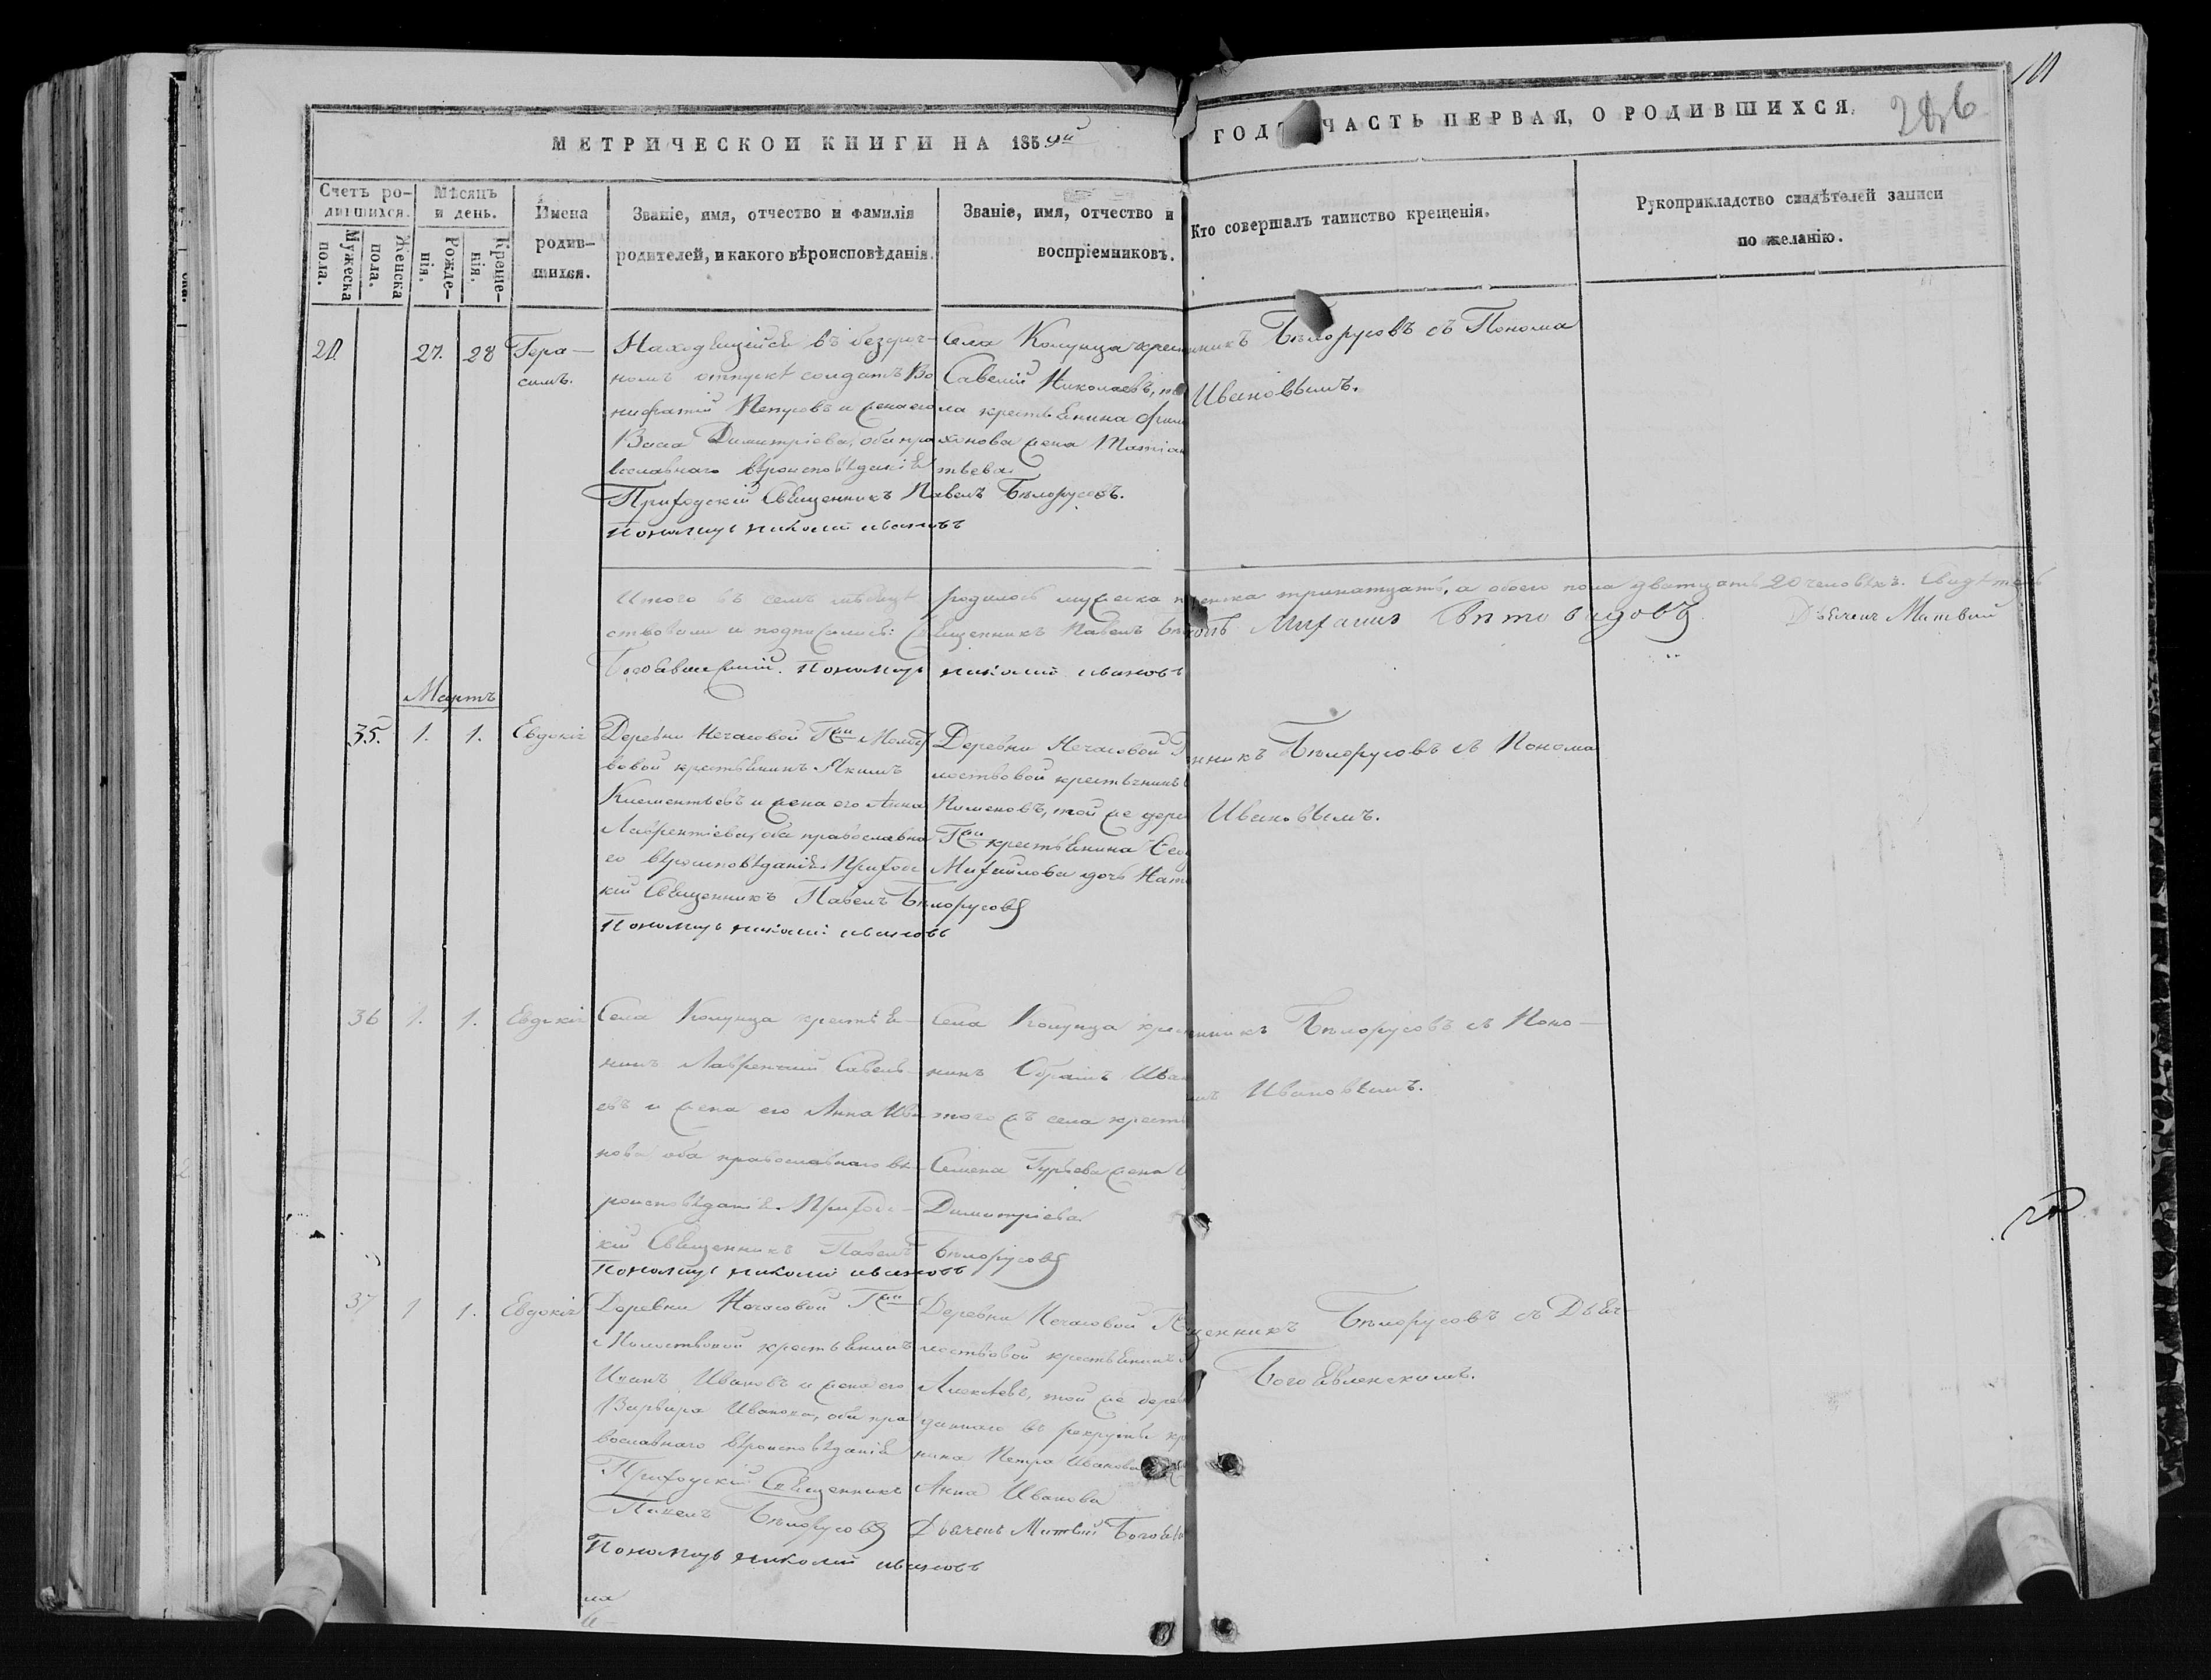 111
286
МЕТРИЧЕСКОЙ КНИГИ НА 1859й
ГОД ЧАСТЬ ПЕРВАЯ, О РОДИВШИХСЯ.
Счетъ ро-
дившихся.
Мужеска
пола.
Женска
пола.
Мѣсяцъ
и день.
Рожде-
нія.
Креще-
нія.
Имена
родив-
шихся.
Званіе, имя, отчество и фамилія
родителей, и какого вѣроисповѣданія.
Званіе, имя, отчество и
воспріемниковъ.
Кто совершалъ таинство крещенія.
Рукоприкладство свидѣтелей записи
по желанію.
27. 28 Гера-
симъ.
Находящійся въ безсроч-
номъ отпускѣ солдатъ Во
нифатій и жена его
Васса Димитріева, оба пра
вославнаго вѣроисповѣданія
Приходскій Священникъ Павелъ Бѣлорусовъ.
Пономарь Николай Ивановъ
Села Колунца крест
Савелій Николаевъ, то
ла крестьянина Фили
монова жена Татіан
тьева.
нникъ Бѣлорусовъ съ Понома
Ивановымъ.
Итого въ семъ мѣсяцѣ родилось мужеска женска тринатцать, а обоего пола дватцать 20 человѣкъ. Свидѣтель
ствовали и подписались: Священникъ Павелъ Михаилъ Дьячекъ Матвей
Богоявленскій. Пономарь Николай Ивановъ
Мартъ
35. 1. 1. Евдокія
Деревни Нечасовой Гжи Молост
вовой крестьянинъ Якимъ
Климентьевъ и жена его Анна
Лаврентіева, оба православна
го вѣроисповѣданія. Приходс
кій Священникъ Павелъ Бѣлорусовъ
Пономарь Николай Ивановъ
Деревни Нечасовой Г
лоствовой крестьянинъ
Пименовъ, той же дере
Гжи крестьянина
Михайлова дочь Ната
нникъ Бѣлорусовъ съ Понома
Ивановымъ.
36 1. 1. Евдокія
Села Колунца крестья-
нинъ Лаврентій Савель-
евъ и жена его Анна Ива-
нова оба православнаго вѣ-
роисповѣданія. Приходс-
кій Священникъ Павелъ Бѣлорусовъ
Пономарь Николай Ивановъ
Села Колунца крес
нинъ Ива
того жъ села кресть
Семена Гурьева жена
Димитріева
нникъ Бѣлорусовъ съ Поно-
мъ Ивановымъ.
37 1 1. Евдокія
Деревни Нечасовой Гжи
Молоствовой крестьянинъ
Иванъ Ивановъ и жена его
Варвара Иванова, оба пра
вославнаго вѣроисповѣданія
Приходскій Священникъ
Павелъ Бѣлорусовъ
Пономарь Николай Ивановъ
Деревни Нечасовой Г
лоствовой крестьянинъ
Алексѣевъ, той же дерев
даннаго въ рекруты кр
нина Петра Иванова
Анна Иванова
Дьячекъ Матвей Богоявл
щенникъ Бѣлорусовъ съ Дьяч-
Богоявленскимъ.